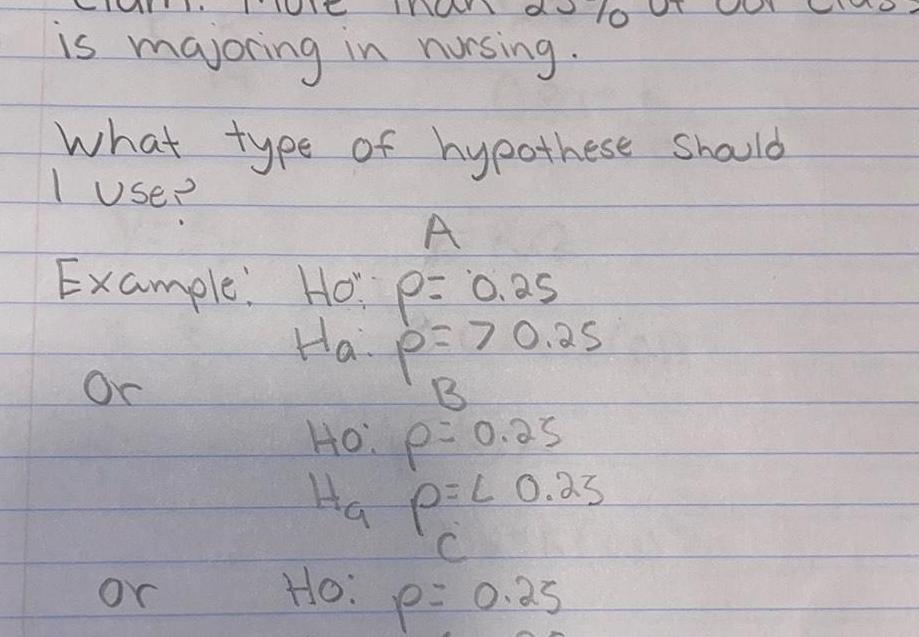 Claim: More than 25% of our class
is majoring in nursing.
What type of hypothese should
I use?
A
Example: Ho: p= 0.25
Ha: p= > 0.25
Or
B
Ho: p= 0.25
Ha p= < 0.25
C
or Ho: p= 0.25